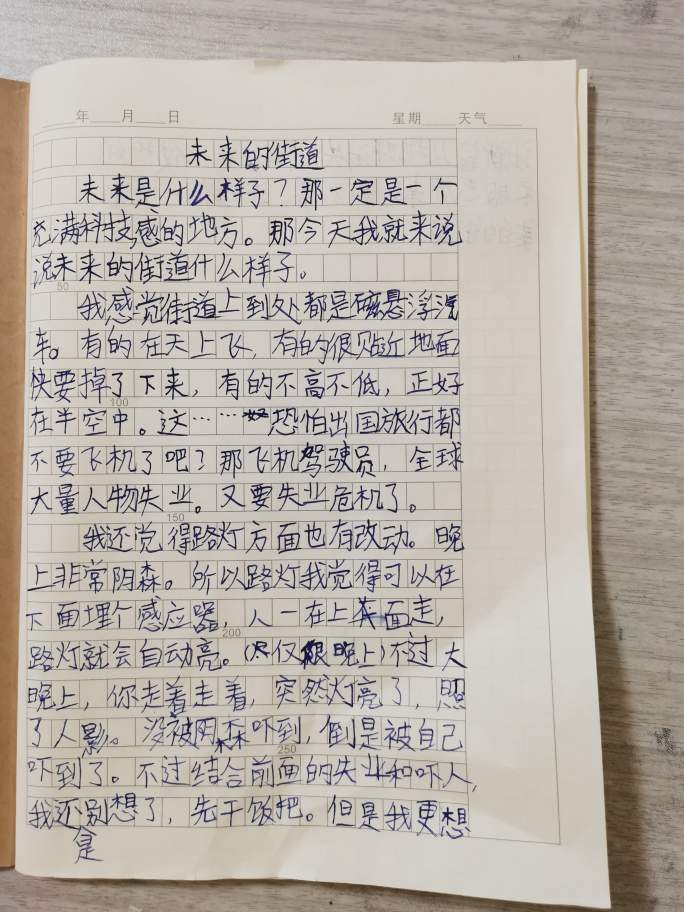 年 月 日 星期 天气
未来的街道
未来是什么样子？那一定是一个
充满科技感的地方。那今天我就来说
说未来的街道什么样子。
50
我感觉街道上到处都是磁悬浮汽
车。有的在天上飞，有的很贴近地面
快要掉了下来，有的不高不低，正好
100
在半空中。这……恐怕出国旅行都
不要飞机了吧？那飞机驾驶员，全球
大量人物失业。又要失业危机了。
150
我还觉得路灯方面也有改动。晚
上非常阴森。所以路灯我觉得可以在
下面埋个感应器，人一在上面走，
200
路灯就会自动亮。（仅限晚上）不过大
晚上，你走着走着，突然灯亮了，照
了人影。没被阴森吓到，倒是被自己
250
吓到了。不过结合前面的失业和吓人，
我还是别想了，先干饭把。但是我更想